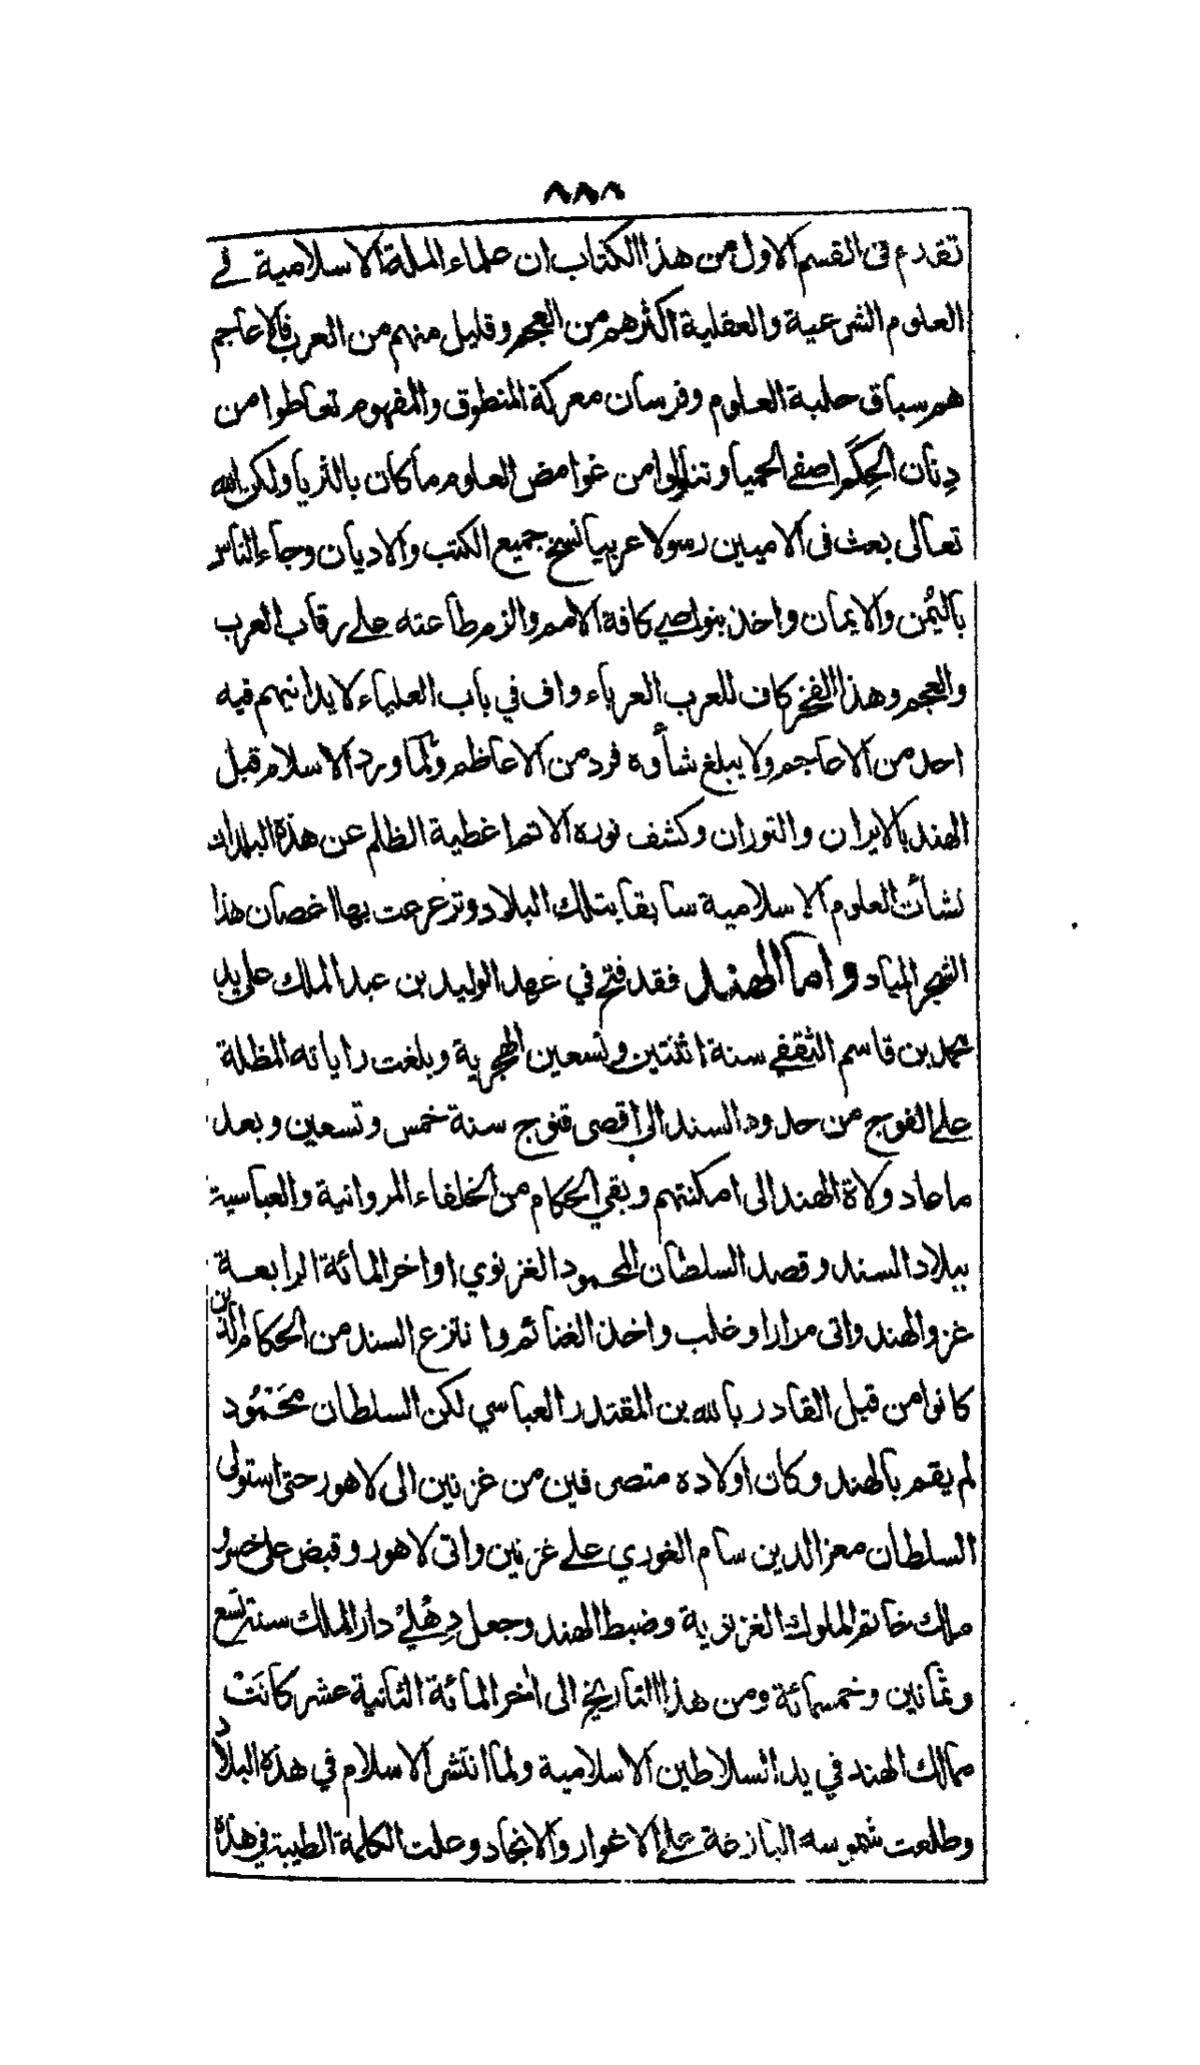 ٨٨٨
تقدم فى القسم الاول من هذا الكتاب ان علماء الملة الاسلامية فے
العلوم الشرعية والعقلية اكثرهم من العجم وقليل منهم من العرب فالاعاجم
هم سباق حلبة العلوم وفرسان معركة المنطوق والمفهوم تعاطوا من
دِنان الحِكَم اصفے الحميا وتناولوا من غوامض العلوم ما كان بالثريا ولكن الله
تعالى بعث فى الاميين رسولا عربيا نسخ جميع الكتب والاديان وجاء الناس
باليُمن والايمان واخذ بنواصے كافة الامم والزم طاعته علے رقاب العرب
والعجم وهذا الفخر كاف للعرب العرباء واف في باب العلياء لا يدانيهم فيه
احد من الاعاجم ولا يبلغ شأوه فرد من الاعاظم ولما ورد الاسلام قبل
الهند بالايران والتوران وكشف نوره الاتم اغطية الظلم عن هذه البلدان
نشأت العلوم الاسلامية سابقا بتلك البلاد وترعرعت بها اغصان هذا
الشجر المياد واما الهند فقد فتح في عهد الوليد بن عبد الملك على يد
محمد بن قاسم الثقفي سنة اثنتين وتسعين الهجرية وبلغت راياته المظلة
علے الفوج من حدود السند الى اقصى قنوج سنة خمس وتسعين وبعد
ما عاد ولاة الهند الى امكنتهم وبقي الحكام من الخلفاء المروانية والعباسية
ببلاد السند وقصد السلطان المحمود الغزنوي اواخر المائة الرابعة
غزو الهند واتى مرارا وغلب واخذ الغنائم وانتزع السند من الحكام الذين
كانوا من قبل القادر بالله بن المقتدر العباسي لكن السلطان محمُود
لم يقم بالهند وكان اولاده متصرفين من غزنين الى لاهور حتى استولى
السلطان معز الدين سام الغوري علے غزنين واتى لاهور وقبض على خسرو
ملك خاتم الملوك الغزنوية وضبط الهند وجعل دِهْلے دار الملك سنة تسع
وثمانين وخمسمائة ومن هذا التاريخ الى اٰخر المائة الثانية عشر كانَتْ
ممالك الهند في يد السلاطين الاسلامية ولما انتشر الاسلام في هذه البلاد
وطلعت شموسه البازغة علے الاغوار والانجاد وعلت الكلمة الطيبة في هذه